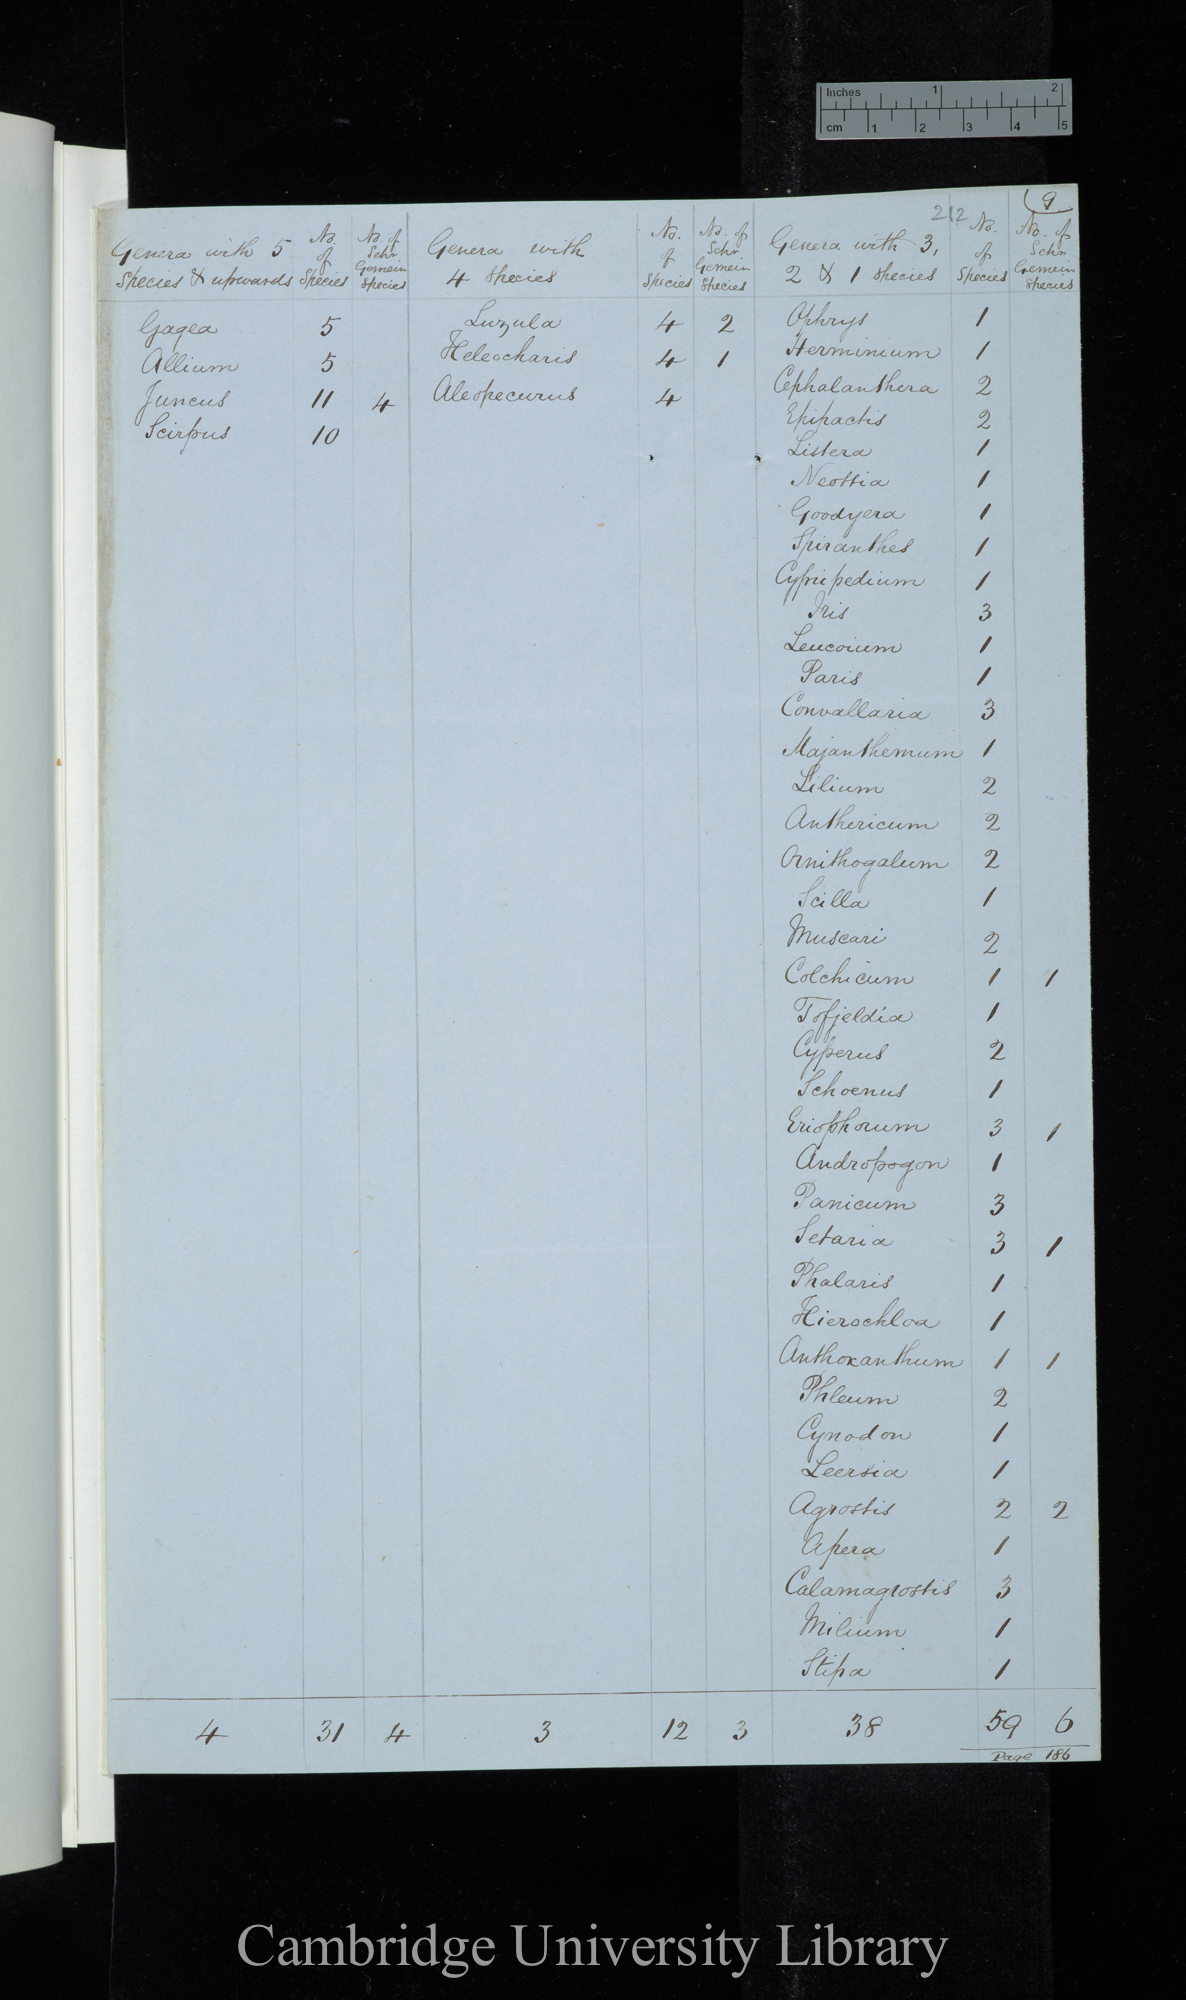 Inches 1 2
cm 1 2 3 4 5
212
9
Genera with 5 Species & upwards | No. of Species | No. of Schr Gemein Species | Genera with 4 Species | No. of Species | No. of Schr Gemein Species | Genera with 3, 2 & 1 Species | No. of Species | No. of Schr Gemein Species
Gagea 5 Luzula 4 2 Ophrys 1
Allium 5 Heleocharis 4 1 Herminium 1
Juncus 11 4 Aleopecurus 4 Cephalanthera 2
Scirpus 10 Epipactis 2
Listera 1
Neottia 1
Goodyera 1
Spiranthes 1
Cypripedium 1
Iris 3
Leucoium 1
Paris 1
Convallaria 3
Majanthemum 1
Lilium 2
Anthericum 2
Ornithogalum 2
Scilla 1
Muscari 2
Colchicum 1 1
Tofjeldia 1
Cyperus 2
Schoenus 1
Eriophorum 3 1
Andropogon 1
Panicum 3
Setaria 3 1
Phalaris 1
Hierochloa 1
Anthoxanthum 1 1
Phleum 2
Cynodon 1
Leersia 1
Agrostis 2 2
Apera 1
Calamagrostis 3
Milium 1
Stipa 1
4 31 4 3 12 3 38 59 6
Page 186
Cambridge University Library